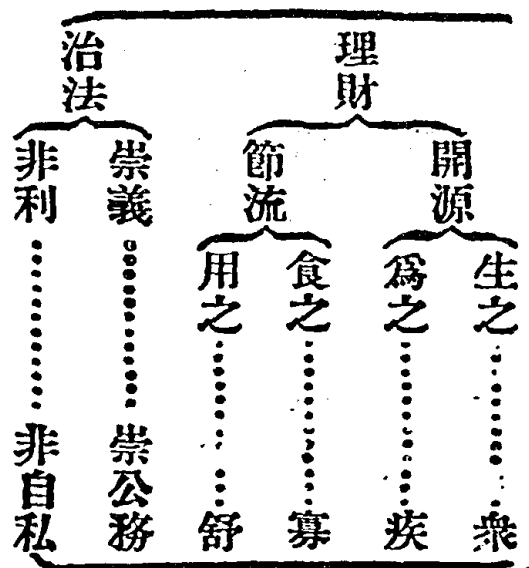 理財
開源
生之……衆
爲之……疾
節流
食之……寡
用之……舒
治法
崇義……崇公務
非利……非自私